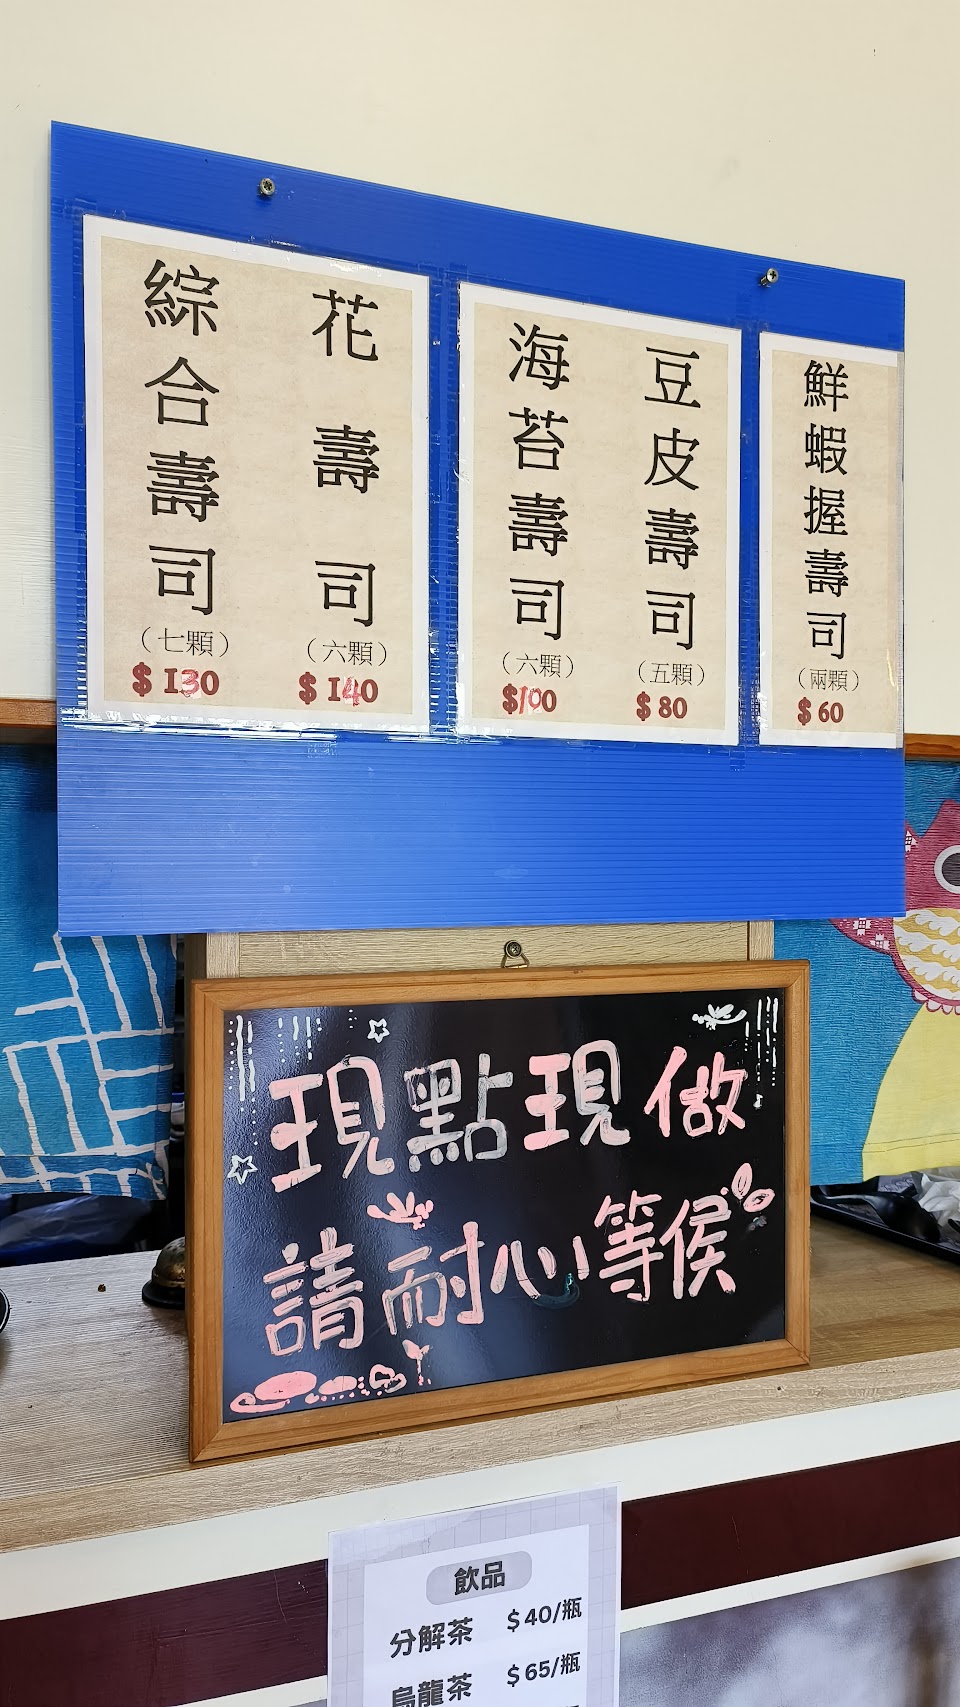 綜合壽司
（七顆）
$130
花壽司
（六顆）
$140
海苔壽司
（六顆）
$100
豆皮壽司
（五顆）
$80
鮮蝦握壽司
（兩顆）
$60
現點現做
請耐心等侯
飲品
分解茶 $40/瓶
烏龍茶 $65/瓶